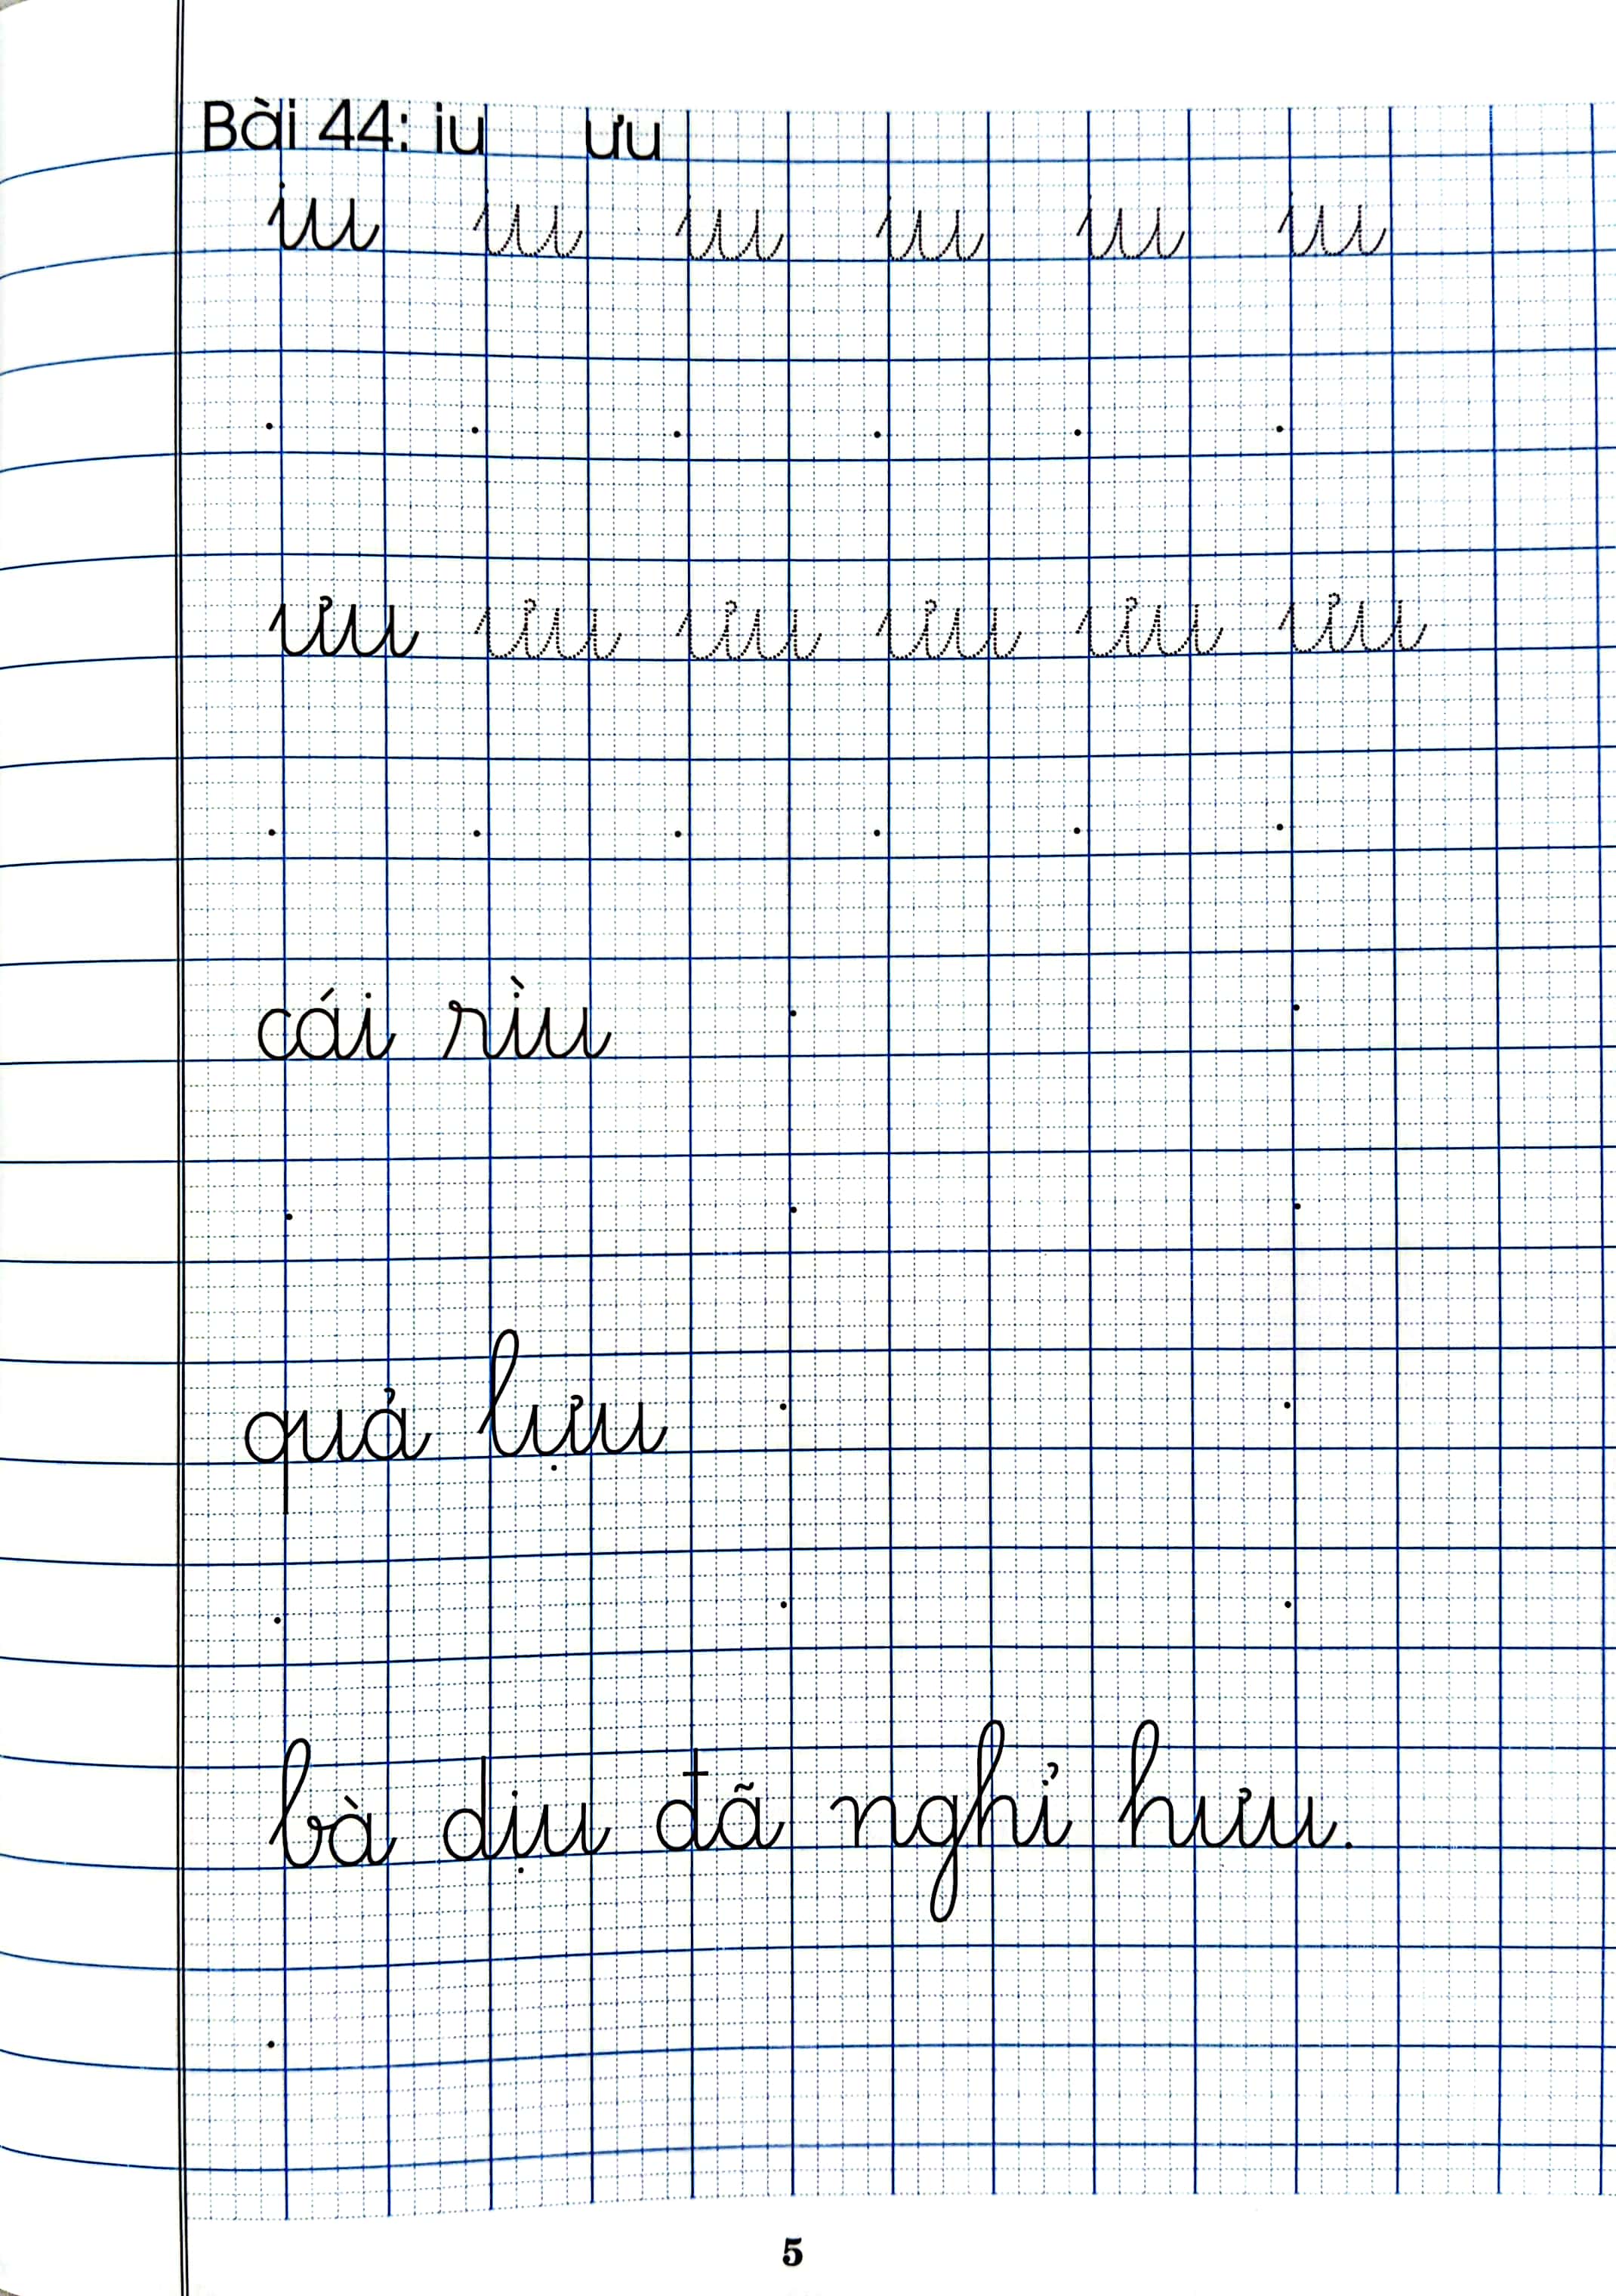 Bài 44: iu ưu
iu iu iu iu iu iu
ưu ưu ưu ưu ưu ưu
cái rìu
quả lựu
bà dịu đã nghỉ hưu.
5